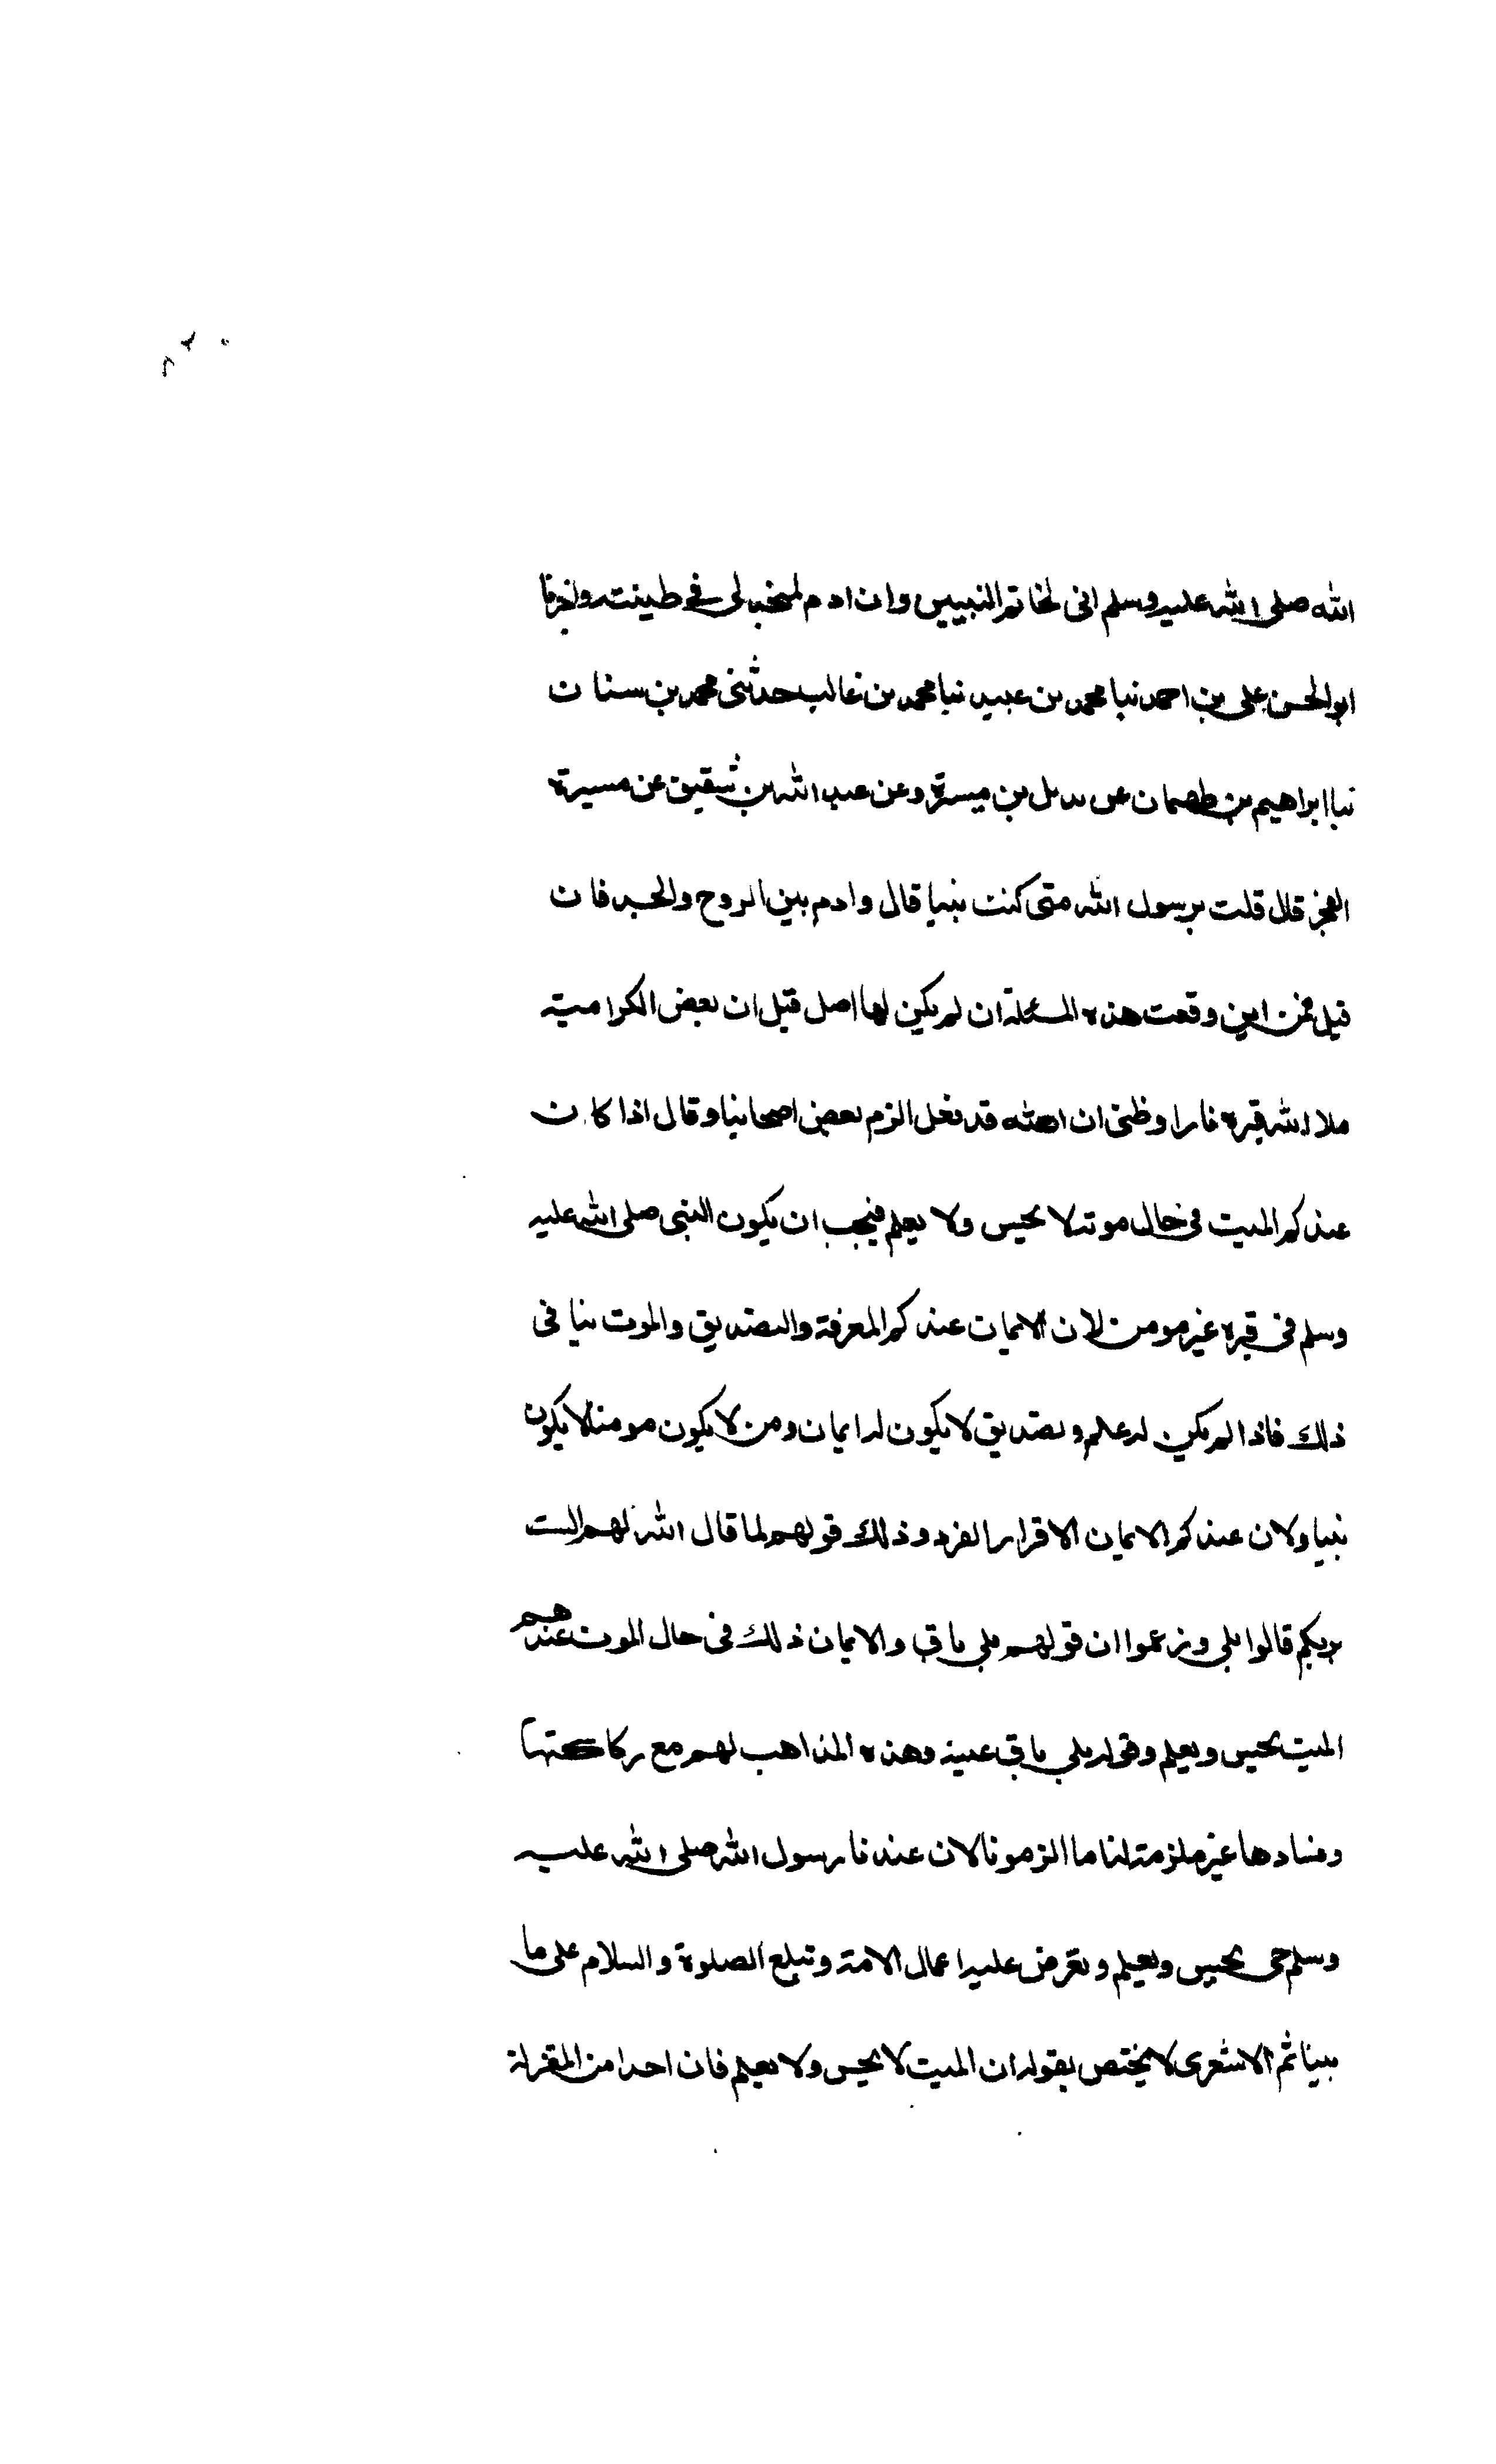 الله صلى الله عليه وسلم انى لخاتم النبيين وان ادم لمنجدلى فى طينته واخبرنا
ابو الحسن على بن احمد نبا محمد بن عبيد نبا محمد بن غالب حدثنى محمد بن سنان
نبا ابراهيم بن طهمان عن بديل بن ميسرة وعن عبد الله بن شقيق عن مسيرة
الفجر قال قلت يرسول الله متى كنت نبيا قال وادم بين الروح والجسد فان
قيل فمن اين وقعت هذه المسئلة ان لم يكن لها اصل قيل ان بعض الكرامية
ملا الله قبره نارا وظنى ان الله قد فعل الزم بعض اصحابنا وقال اذا كان
عندكم الميت فى حال موته لا يحس ولا يعلم فيجب ان يكون النبى صلى الله عليه
وسلم فى قبره غير مومن لان الايمان عندكم المعرفة والتصديق والموت ينافى
ذلك فاذا لم يكن له علم وتصديق لا يكون له ايمان ومن لا يكون مومنا لا يكون
نبيا ولان عندكم الايمان الاقرار الفرد وذلك قولهم لما قال الله لهم الست
بربكم قالوا بلى وزعموا ان قولهم بلى باق والايمان ذلك فى حال الموت عندهم
الميت يحس ويعلم وقوله بلى باق عينه وهذه المذاهب لهم مع ركاكتها
وفسادها غير ملزمة لنا ما الزمونا لان عندنا رسول الله صلى الله عليه
وسلم حى يحس ويعلم وتعرض عليه اعمال الامة وتبلغ الصلوة والسلام على ما
بينا ثم الاشعرى لا يختص بقوله ان الميت لا يحس ولا يعلم فان احدا من المعتزلة